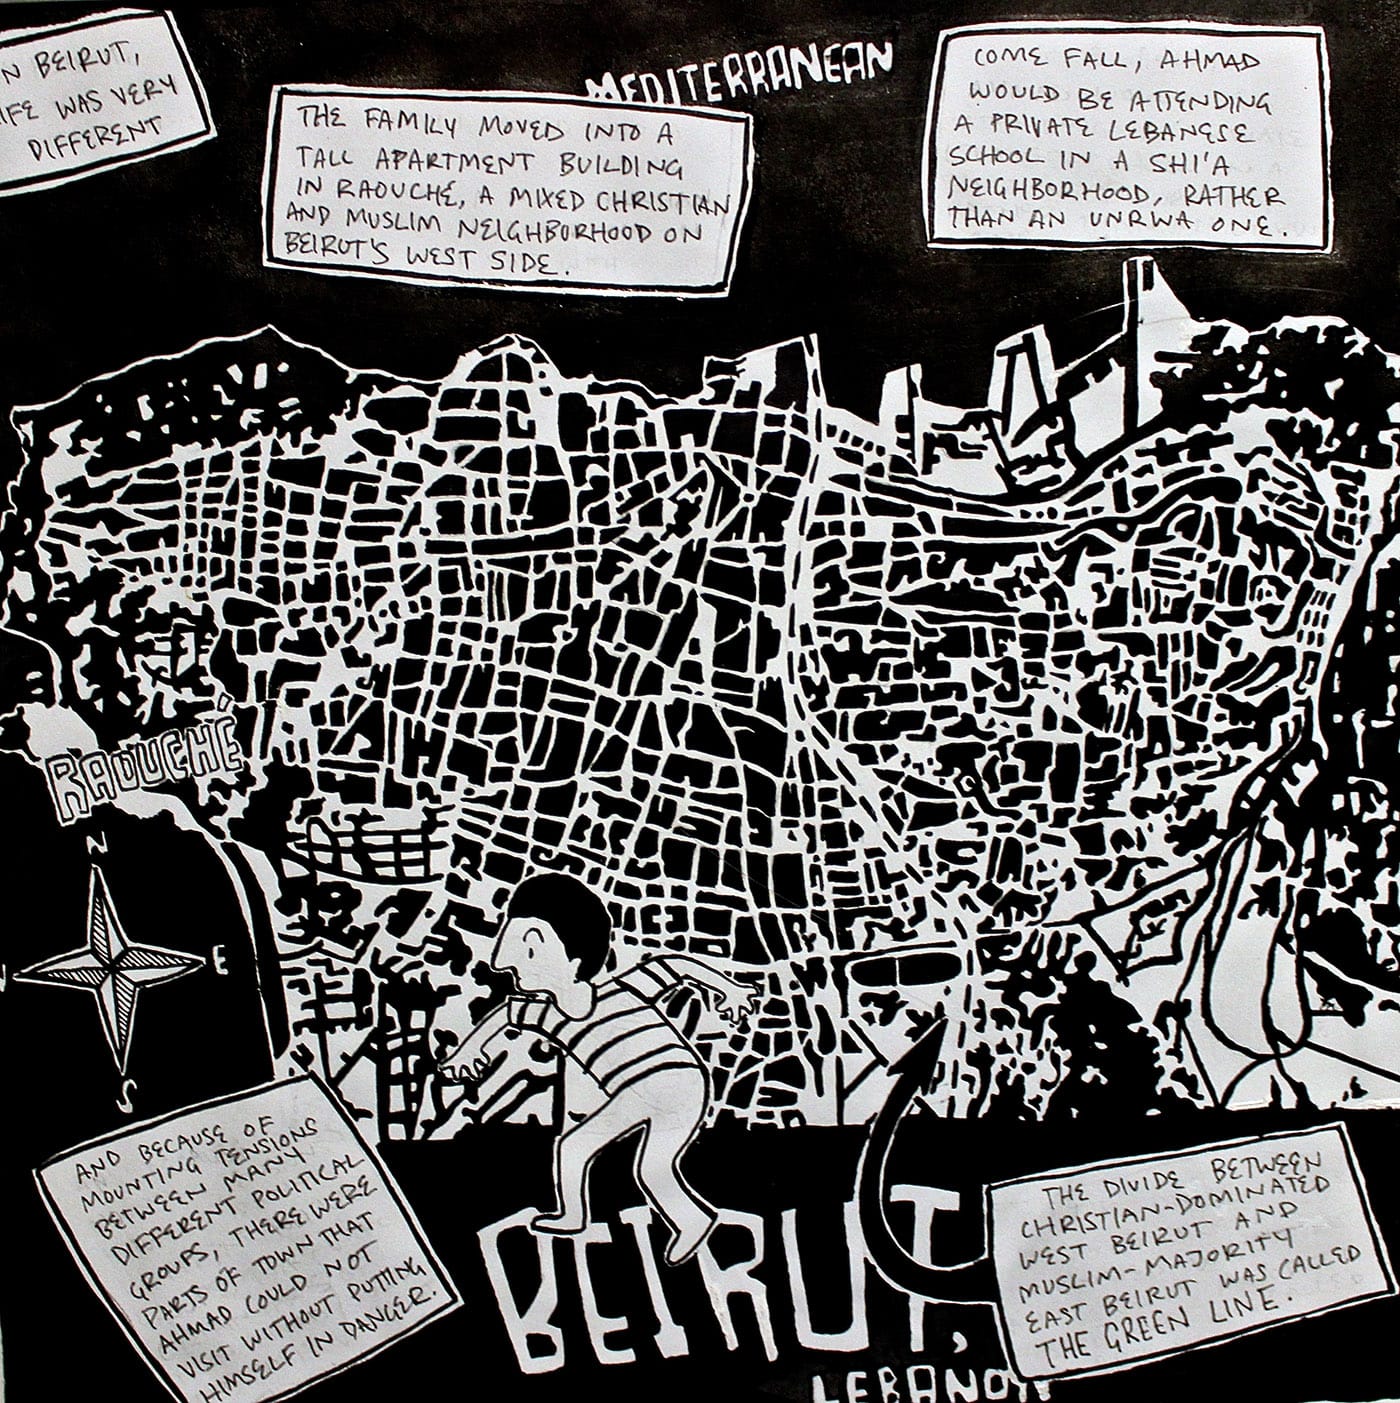 N BEIRUT,
IFE WAS VERY
DIFFERENT
MEDITERRANEAN
THE FAMILY MOVED INTO A
TALL APARTMENT BUILDING
IN RAOUCHÉ, A MIXED CHRISTIAN
AND MUSLIM NEIGHBORHOOD ON
BEIRUT'S WEST SIDE.
COME FALL, AHMAD
WOULD BE ATTENDING
A PRIVATE LEBANESE
SCHOOL IN A SHI'A
NEIGHBORHOOD, RATHER
THAN AN UNRWA ONE.
RAOUCHÉ
N
E
S
AND BECAUSE OF
MOUNTING TENSIONS
BETWEEN MANY
DIFFERENT POLITICAL
GROUPS, THERE WERE
PARTS OF TOWN THAT
AHMAD COULD NOT
VISIT WITHOUT PUTTING
HIMSELF IN DANGER.
THE DIVIDE BETWEEN
CHRISTIAN-DOMINATED
WEST BEIRUT AND
MUSLIM-MAJORITY
EAST BEIRUT WAS CALLED
THE GREEN LINE.
BEIRUT,
LEBANON